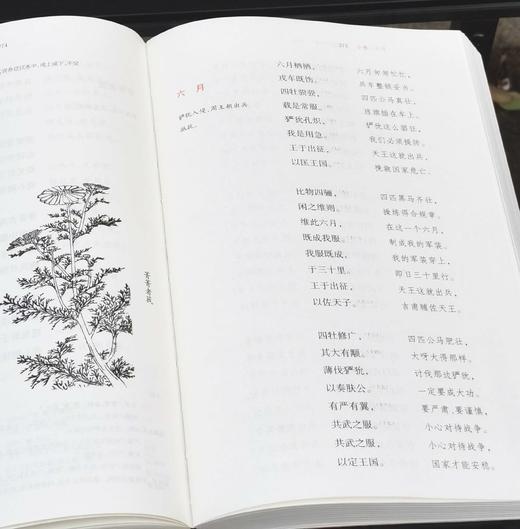 74
菁菁者莪。
275 小雅
六月
猃狁入侵，周王朝出兵
抵抗。
六月栖栖， 六月匆匆忙忙，
戎车既饬。 兵车整顿妥当。
四牡骙骙， 四匹公马真壮，
载是常服。 旌旗插在车上。
猃狁孔炽， 猃狁这么猖狂，
我是用急。 我们必须提防。
王于出征， 天王这就出兵，
以匡王国。 挽救国家危亡。
比物四骊， 四匹黑马齐壮，
闲之维则。 操练得合规章。
维此六月， 在这一个六月，
既成我服。 制成我的军装。
我服既成， 我的军装穿上，
于三十里。 即日三十里行。
王于出征， 天王这就出兵，
以佐天子。 吉甫辅佐天王。
四牡修广， 四匹公马肥壮，
其大有颙。 大呀大得那样。
薄伐猃狁， 讨我那这猃狁，
以奏肤公。 一定要成大功。
有严有翼， 要严肃，要谨慎，
共武之服。 小心对待战争。
共武之服， 小心对待战争，
以定王国。 国家才能安稳。